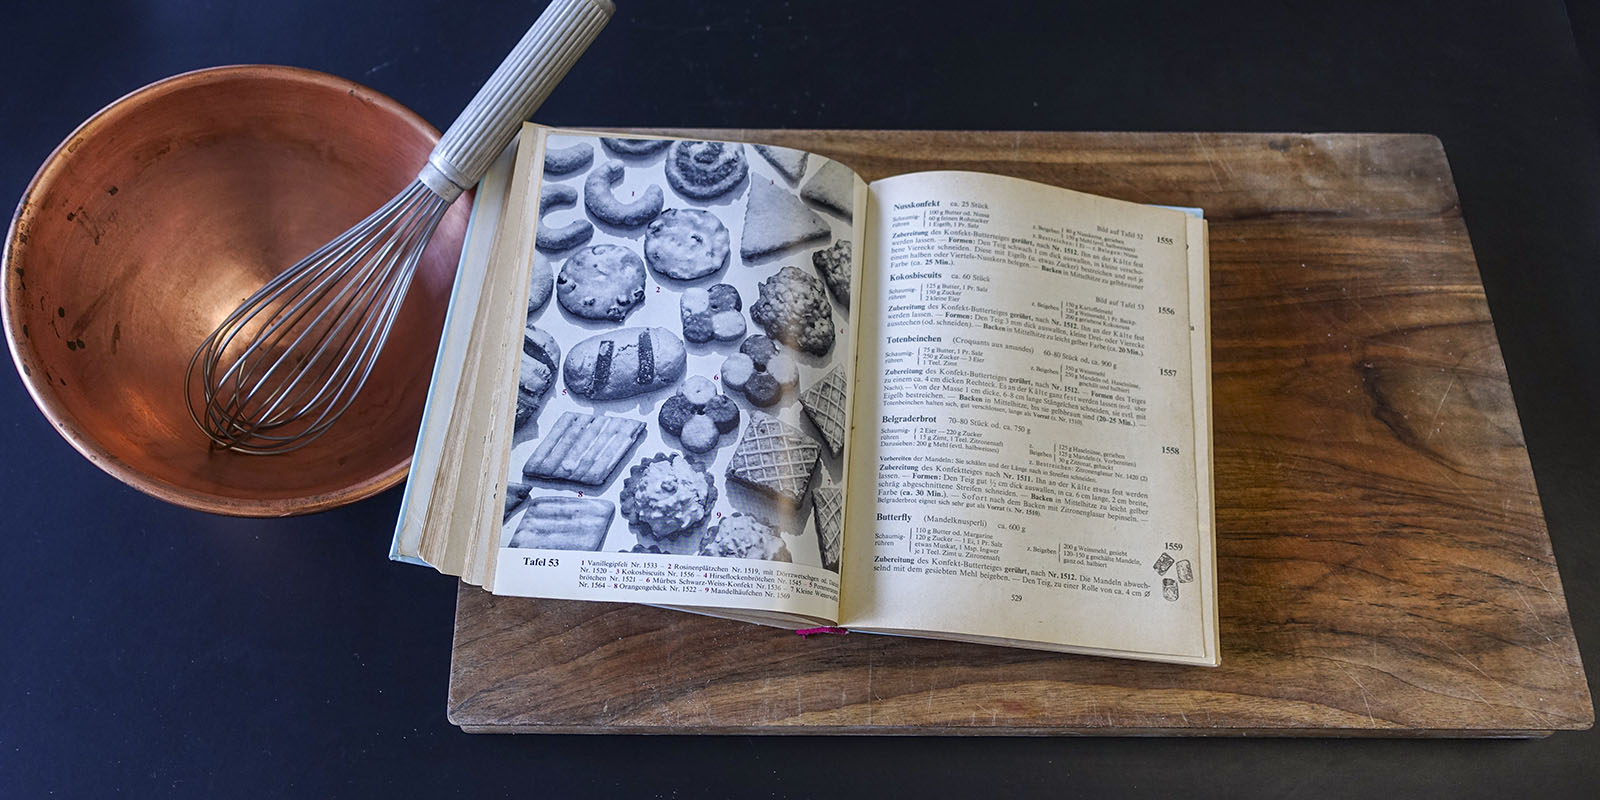 Tafel 53
1 Vanillegipfeli Nr. 1533 – 2 Rosinenplätzchen Nr. 1519, mit Dörrzwetschgen od.
Nr. 1520 – 3 Kokosbiscuits Nr. 1556 – 4 Hirseflockenbrötchen Nr. 1545 – 5
brötchen Nr. 1521 – 6 Mürbes Schwarz-Weiss-Konfekt Nr. 1536 – 7 Kleine
Nr. 1564 – 8 Orangengebäck Nr. 1522 – 9 Mandelhäufchen Nr. 1569
1
2
5
6
8
9
Nusskonfekt ca. 25 Stück
Bild auf Tafel 52 1555
Schaumig-rühren
100 g Butter od. Nussa
60 g feinen Rohzucker
1 Eigelb, 1 Pr. Salz
z. Beigeben
80 g Nusskerne, gerieben
150 g Mehl (evtl. halbweisses)
z. Bestreichen: 1 Ei — z. Belegen: Nüsse
Zubereitung des Konfekt-Butterteiges gerührt, nach Nr. 1512. Ihn an der Kälte fest
werden lassen. — Formen: Den Teig schwach 1 cm dick auswallen, in kleine verscho-
bene Vierecke schneiden. Diese mit Eigelb (u. etwas Zucker) bestreichen und mit je
einem halben oder Viertels-Nusskern belegen. — Backen in Mittelhitze zu gelbbrauner
Farbe (ca. 25 Min.).
Kokosbiscuits ca. 60 Stück
Bild auf Tafel 53 1556
Schaumig-rühren
125 g Butter, 1 Pr. Salz
150 g Zucker
2 kleine Eier
z. Beigeben
150 g Kartoffelmehl
120 g Weissmehl, 1 Pr. Backp.
200 g geriebene Kokosnuss
Zubereitung des Konfekt-Butterteiges gerührt, nach Nr. 1512. Ihn an der Kälte fest
werden lassen. — Formen: Den Teig 3 mm dick auswallen, kleine Drei- oder Vierecke
ausstechen (od. schneiden). — Backen in Mittelhitze zu leicht gelber Farbe (ca. 20 Min.).
Totenbeinchen (Croquants aux amandes) 60-80 Stück od. ca. 900 g
1557
Schaumig-rühren
75 g Butter, 1 Pr. Salz
250 g Zucker — 3 Eier
1 Teel. Zimt
z. Beigeben
350 g Weissmehl
250 g Mandeln od. Haselnüsse,
geschält und halbiert
Zubereitung des Konfekt-Butterteiges gerührt, nach Nr. 1512. — Formen des Teiges
zu einem ca. 4 cm dicken Rechteck. Es an der Kälte ganz fest werden lassen (evtl. über
Nacht). — Von der Masse 1 cm dicke, 6-8 cm lange Stängelchen schneiden, sie evtl. mit
Eigelb bestreichen. — Backen in Mittelhitze, bis sie gelbbraun sind (20-25 Min.). —
Totenbeinchen halten sich, gut verschlossen, lange als Vorrat (s. Nr. 1510).
Belgraderbrot 70–80 Stück od. ca. 750 g
1558
Schaumig-rühren
2 Eier — 220 g Zucker
15 g Zimt, 1 Teel. Zitronensaft
Dazusieben: 200 g Mehl (evtl. halbweisses)
z. Beigeben
125 g Haselnüsse, gerieben
125 g Mandeln (s. Vorbereiten)
30 g Zitronat, gehackt
z. Bestreichen: Zitronenglasur Nr. 1420 (2)
Vorbereiten der Mandeln: Sie schälen und der Länge nach in Streifen schneiden.
Zubereitung des Konfektteiges nach Nr. 1511. Ihn an der Kälte etwas fest werden
lassen. — Formen: Den Teig gut ½ cm dick auswallen, in ca. 6 cm lange, 2 cm breite,
schräg abgeschnittene Streifen schneiden. — Backen in Mittelhitze zu leicht gelber
Farbe (ca. 30 Min.). — Sofort nach dem Backen mit Zitronenglasur bepinseln. —
Belgraderbrot eignet sich sehr gut als Vorrat (s. Nr. 1510).
Butterfly (Mandelknusperli) ca. 600 g
1559
Schaumig-rühren
110 g Butter od. Margarine
120 g Zucker — 1 Ei, 1 Pr. Salz
etwas Muskat, 1 Msp. Ingwer
je 1 Teel. Zimt u. Zitronensaft
z. Beigeben
200 g Weissmehl, gesiebt
120-150 g geschälte Mandeln,
ganz od. halbiert
Zubereitung des Konfekt-Butterteiges gerührt, nach Nr. 1512. Die Mandeln abwech-
selnd mit dem gesiebten Mehl beigeben. — Den Teig, zu einer Rolle von ca. 4 cm Ø
529